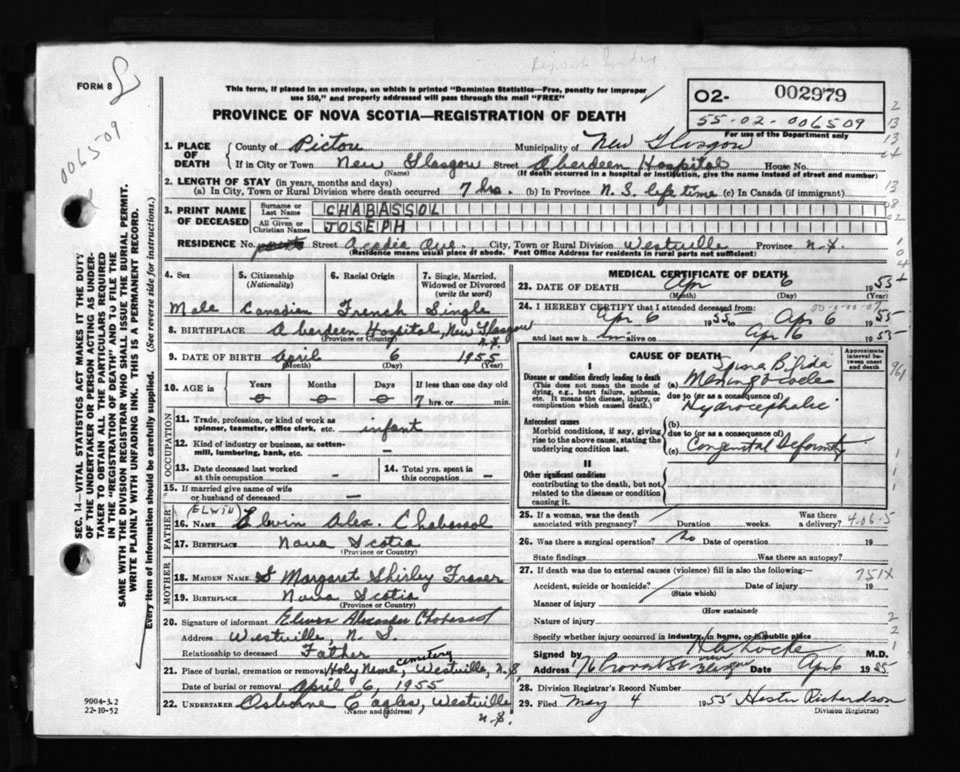 FORM 8
This form, if placed in an envelope, on which is printed "Dominion Statistics—Free, penalty for improper
use $50," and properly addressed will pass through the mail "FREE"
PROVINCE OF NOVA SCOTIA—REGISTRATION OF DEATH
02- 002979
55-02-006509
For use of the Department only
006509
SEC. 14—VITAL STATISTICS ACT MAKES IT THE DUTY
OF THE UNDERTAKER OR PERSON ACTING AS UNDER-
TAKER TO OBTAIN ALL THE PARTICULARS REQUIRED
IN THE "REGISTRATION OF DEATH" AND TO FILE THE
SAME WITH THE DIVISION REGISTRAR WHO SHALL ISSUE THE BURIAL PERMIT.
WRITE PLAINLY WITH UNFADING INK. THIS IS A PERMANENT RECORD.
Every item of information should be carefully supplied. (See reverse side for instructions.)
1. PLACE OF DEATH County of Pictou Municipality of New Glasgow
If in City or Town New Glasgow Street Aberdeen Hospital House No.
(Name) (If death occurred in a hospital or institution, give the name instead of street and number)
2. LENGTH OF STAY (in years, months and days)
(a) In City, Town or Rural Division where death occurred 7 hrs. (b) In Province N.S. life time (c) In Canada (if immigrant)
3. PRINT NAME OF DECEASED Surname or Last Name CHABASSOL
All Given or Christian Names JOSEPH
RESIDENCE No. Street Acadia Ave., City, Town or Rural Division Westville Province N.S.
(Residence means usual place of abode. Post Office Address for residents in rural parts not sufficient)
4. Sex 5. Citizenship (Nationality) 6. Racial Origin 7. Single, Married, Widowed or Divorced (write the word)
Male Canadian French Single
8. BIRTHPLACE Aberdeen Hospital, New Glasgow N.S.
(Province or Country)
9. DATE OF BIRTH April 6 1955
(Month) (Day) (Year)
10. AGE in Years Months Days If less than one day old
0 0 0 7 hrs. or min.
OCCUPATION
11. Trade, profession, or kind of work as spinner, teamster, office clerk, etc. infant
12. Kind of industry or business, as cotton-mill, lumbering, bank, etc. —
13. Date deceased last worked at this occupation —
14. Total yrs. spent in this occupation —
15. If married give name of wife or husband of deceased —
FATHER
(ELWIN)
16. NAME Elwin Alex. Chabassol
17. BIRTHPLACE Nova Scotia
(Province or Country)
MOTHER
18. MAIDEN NAME Margaret Shirley Fraser
19. BIRTHPLACE Nova Scotia
(Province or Country)
20. Signature of informant Elwin Alexander Chabassol
Address Westville, N.S.
Relationship to deceased Father
21. Place of burial, cremation or removal Holy Name Cemetery Westville, N.S.
Date of burial or removal April 6, 1955
22. UNDERTAKER Osborne Eagles, Westville N.S.
(Name and address)
9004-3.2
22-10-52
MEDICAL CERTIFICATE OF DEATH
23. DATE OF DEATH Apr 6 1955
(Month) (Day) (Year)
24. I HEREBY CERTIFY that I attended deceased from:
Apr 6 1955 to Apr 6 1955
and last saw h im alive on Apr 6 1955
CAUSE OF DEATH
Approximate interval between onset and death
I
Disease or condition directly leading to death
(This does not mean the mode of dying, e.g., heart failure, asthenia, etc. It means the disease, injury, or complication which caused death.)
(a) Spina Bifida Meningocele
due to (or as a consequence of)
Hydrocephalic
Antecedent causes
Morbid conditions, if any, giving rise to the above cause, stating the underlying condition last.
(b)
due to (or as a consequence of)
(c) Congenital Deformity
II
Other significant conditions
contributing to the death, but not related to the disease or condition causing it.
25. If a woman, was the death associated with pregnancy? Duration weeks. Was there a delivery?
4.06.5
26. Was there a surgical operation? No Date of operation 19
State findings Was there an autopsy?
27. If death was due to external causes (violence) fill in also the following:—
751X
Accident, suicide or homicide? Date of injury 19
(State which)
Manner of injury
(How sustained)
Nature of injury
Specify whether injury occurred in industry, in home, or in public place
Signed by H.A. Locke M.D.
Address Provost St New Glasgow Date Apr 6 1955
28. Division Registrar's Record Number
29. Filed May 4 1955 Hester Richardson
Division Registrar